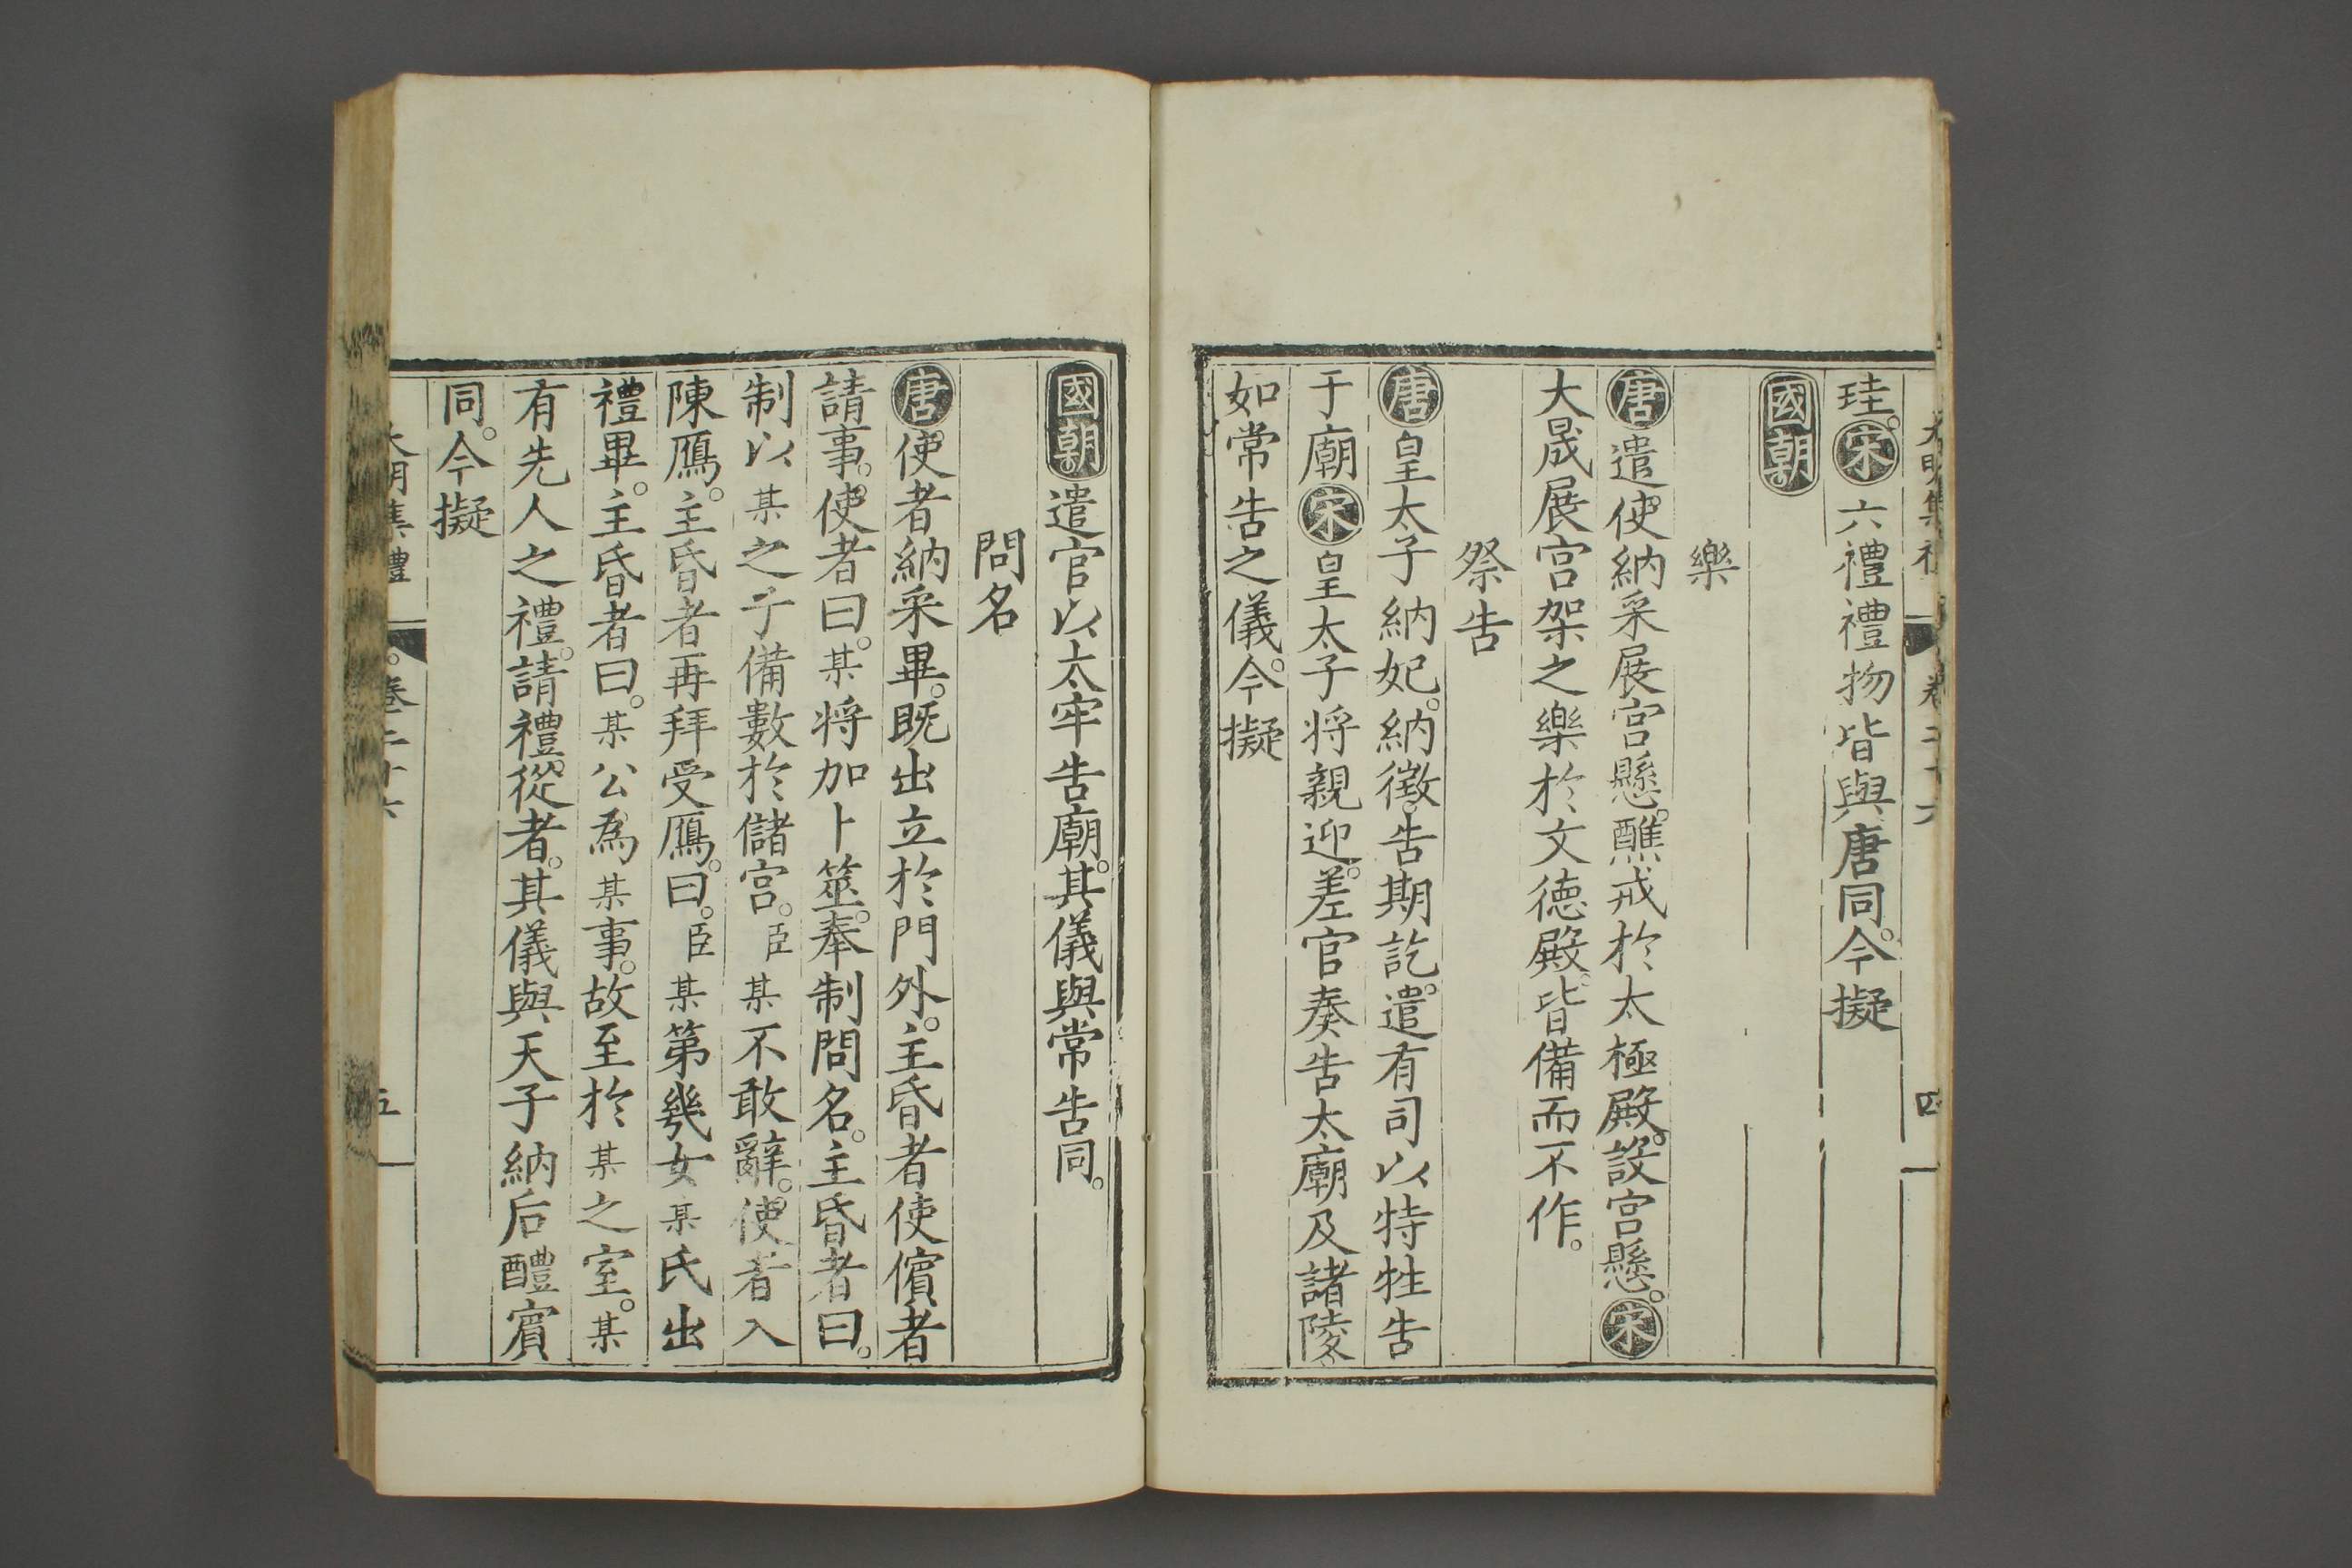 大明集禮 卷二十六 四
珪。宋六禮禮物皆與唐同。今擬
國朝
樂
唐遣使納采展宮懸。醮戒於太極殿。設宮懸。宋
大晟展宮架之樂於文德殿。皆備而不作。
祭告
唐皇太子納妃。納徵。告期訖。遣有司以特牲告
于廟宋皇太子將親迎。差官奏告太廟及諸陵。
如常告之儀。今擬
國朝遣官以太牢告廟。其儀與常告同。
問名
唐使者納采畢。既出立於門外。主昏者使儐者
請事。使者曰。某將加卜筮。奉制問名。主昏者曰。
制以某之子備數於儲宮。臣某不敢辭。使者入
陳鴈。主昏者再拜受鴈。曰。臣某第幾女某氏出
禮畢。主昏者曰。某公為某事。故至於某之室。某
有先人之禮。請禮從者。其儀與天子納后醴賓
同。今擬
大明集禮 卷二十六 五